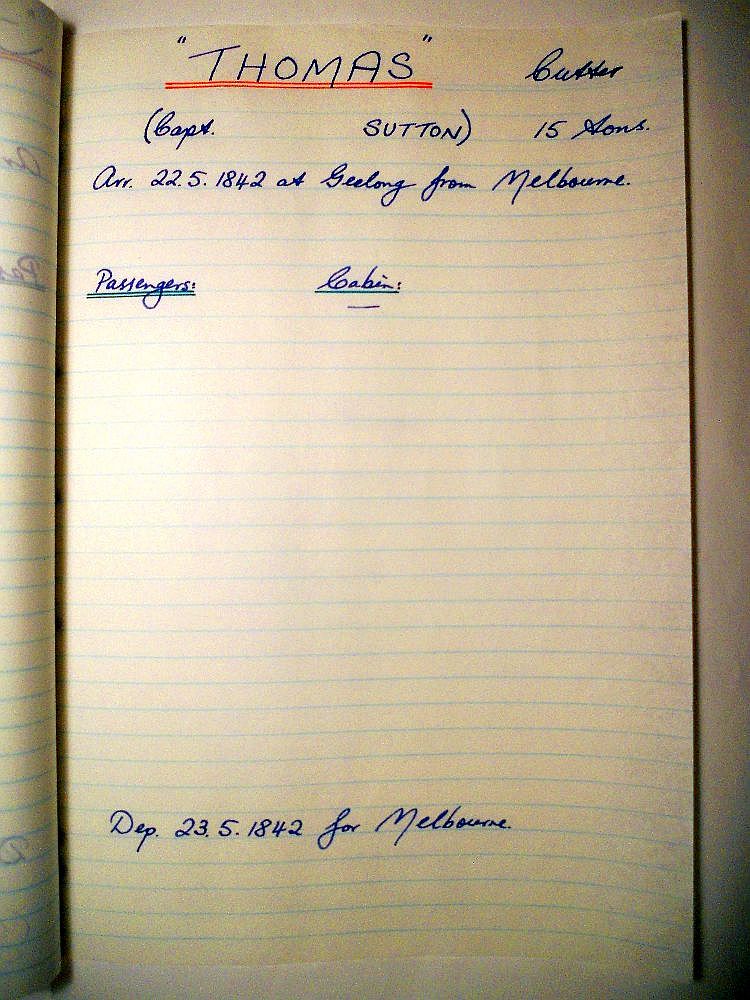 "THOMAS" Cutter
(Capt. SUTTON) 15 tons.
Arr. 22.5.1842 at Geelong from Melbourne.
Passengers: Cabin:
—
Dep. 23.5.1842 for Melbourne.